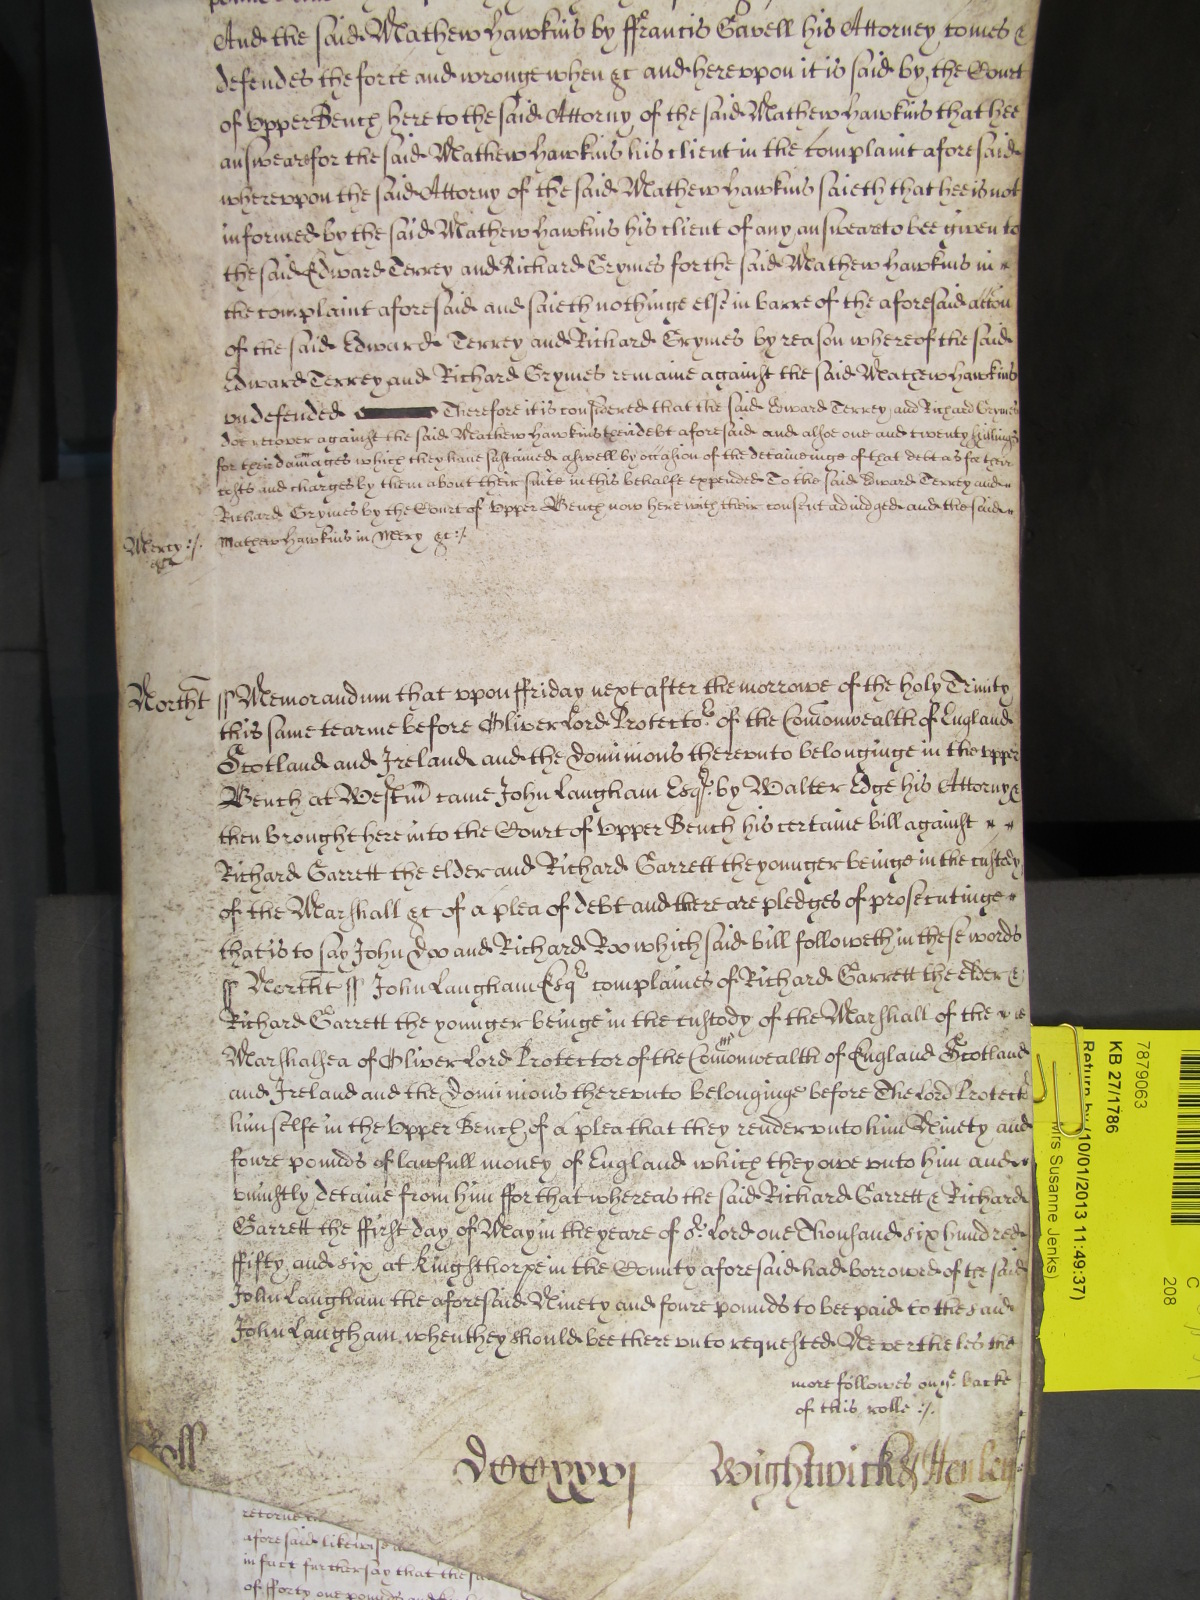 And the said Mathew Hawkins by ffrancis Gavell his Attorney comes &
defendes the force and wronge when &c and hereupon it is said by the Court
of Upper Bench here to the said Attorny of the said Mathew Hawkins that hee
answeare for the said Mathew Hawkins his client in the complaint aforesaid
whereupon the said Attorny of the said Mathew Hawkins saieth that hee is not
informed by the said Mathew Hawkins his client of any answeare to bee given to
the said Edward Terrey and Richard Grymes for the said Mathew Hawkins in
the complaint aforesaid and saieth nothinge else in barre of the aforesaid accon
of the said Edward Terrey and Richard Grymes by reason whereof the said
Edward Terrey and Richard Grymes remaine against the said Mathew Hawkins
undefended Therefore it is considered that the said Edward Terrey and Richard Grymes
doe recover against the said Mathew Hawkins their debt aforesaid and alsoe one and twenty shillings
for their damages which they have sustained aswell by occasion of the detaineinge of that debt as for their
costs and charges by them about their suite in this behalfe expended To the said Edward Terrey and
Richard Grymes by the Court of Upper Bench now here with their consent adiudged and the said
Mercy :/. &c
Mathew Hawkins in Mercy &c :/.
Northt ss Memorandum that upon ffriday next after the morrowe of the holy Trinity
this same tearme before Oliver Lord Protector of the Comonwealth of England
Scotland and Ireland and the dominions thereunto belonginge in the upper
Bench at Westm came John Langham Esqr by Walter Edge his Attorny &
then brought here into the Court of Upper Bench his certaine bill against
Richard Garrett the elder and Richard Garrett the younger beinge in the custody
of the Marshall &c of a plea of debt and there are pledges of prosecutinge
that is to say John Doo and Richard Roo which said bill followeth in these words
ss Northt ss John Langham Esqr complaines of Richard Garrett the elder &
Richard Garrett the younger beinge in the custody of the Marshall of the
Marshalsea of Oliver Lord Protector of the Comonwealth of England Scotland
and Ireland and the dominions thereunto belonginge before The Lord Protector
himselfe in the Upper Bench of a plea that they render unto him Ninety and
foure pounds of lawfull money of England which they owe unto him and
uniustly detaine from him ffor that whereas the said Richard Garrett & Richard
Garrett the ffirst day of May in the yeare of or Lord one Thousand six hundred
ffifty and six at Kingsthorpe in the County aforesaid had borrowed of the said
John Langham the aforesaid Ninety and foure pounds to bee paid to the said
John Langham when they should bee thereunto requested Nevertheles the
more followes on ye backe
of this rolle :/.
Roll dccxxvj Wightwick & Henley
retorne
aforesaid likewise
in fact further say that the sa
of fforty one pounds and
7879063
KB 27/1786
Return by (10/01/2013 11:49:37)
Mrs Susanne Jenks)
C
208